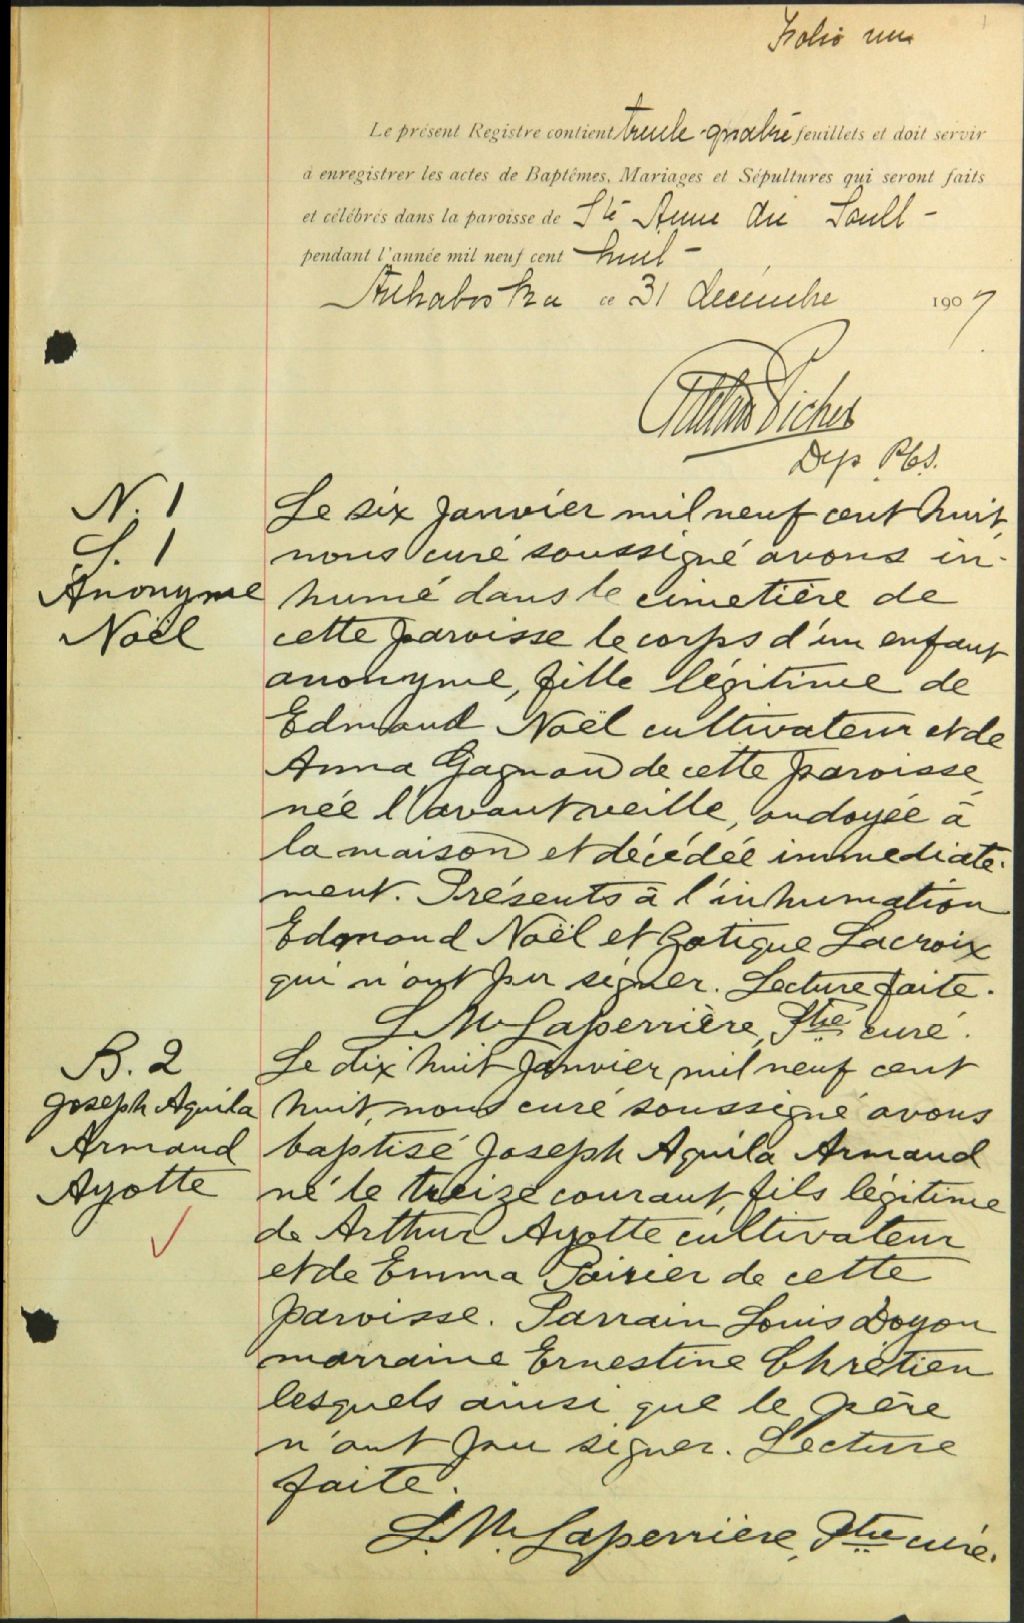 Folio un
Le présent Registre contient trente-quatre feuillets et doit servir
à enregistrer les actes de Baptêmes, Mariages et Sépultures qui seront faits
et célébrés dans la paroisse de Ste Anne du Sault -
pendant l'année mil neuf cent huit -
Arthabaska ce 31 décembre 1907
Picher
Dep. P.C.S.
N. 1
S. 1
Anonyme
Noël
Le six janvier mil neuf cent huit,
nous curé soussigné avons in-
humé dans le cimetière de
cette paroisse le corps d'un enfant
anonyme, fille légitime de
Edmond Noël cultivateur et de
Anna Gagnon de cette paroisse,
née l'avant veille, ondoyée à
la maison et décédée immediate-
ment. Présents à l'inhumation
Edmond Noël et Lacroix
qui n'ont pu signer. Lecture faite.
L. M. Laperrière, Ptre curé.
B. 2
Joseph Aquila
Armand
Ayotte
Le dix huit janvier mil neuf cent
huit, nous curé soussigné avons
baptisé Joseph Aquila Armand
né le treize courant, fils légitime
de Arthur Ayotte cultivateur
et de Emma Poirier de cette
paroisse. Parrain Louis Doyon
marraine Ernestine Chrétien
lesquels ainsi que le père
n'ont pu signer. Lecture
faite.
L. M. Laperrière, Ptre curé.